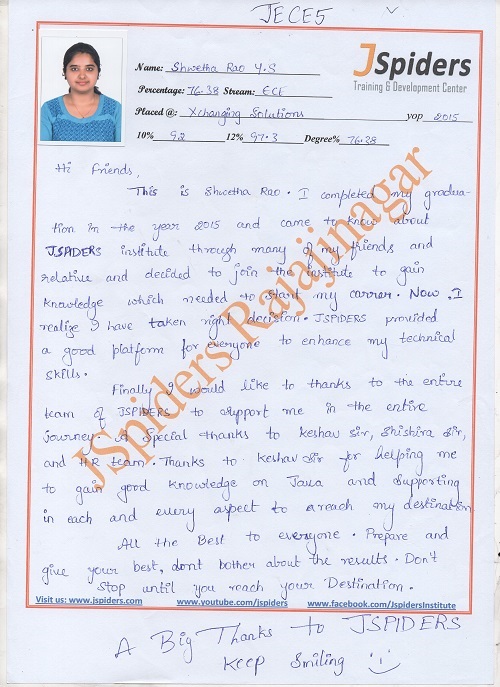 JECE5
JSpiders
Training & Development Center
Name: Shwetha Rao Y.S
Percentage: 76.38 Stream: ECE
Placed @: Xchanging Solutions yop 2015
10% 92 12% 97.3 Degree% 76.38
Hi Friends,
This is Shwetha Rao. I completed my gradua-
tion in the year 2015 and came to know about
JSPIDERS institute through many of my friends and
relative and decided to join the institute to gain
knowledge which needed to start my carrer. Now, I
realize I have taken right decision. JSPIDERS provided
a good platform for everyone to enhance my technical
skills.
Finally I would like to thanks to the entire
team of JSPIDERS to support me in the entire
journey. A Special thanks to keshav sir, Shishira Sir,
and HR team. Thanks to keshav sir for helping me
to gain good knowledge on Java and supporting
in each and every aspect to areach my destination
All the Best to everyone. Prepare and
give your best, dont bother about the results. Don't
Stop until you reach your Destination.
JSpiders Rajajinagar
Visit us: www.jspiders.com www.youtube.com/jspiders www.facebook.com/JspidersInstitute
A Big Thanks to JSPIDERS
Keep Smiling